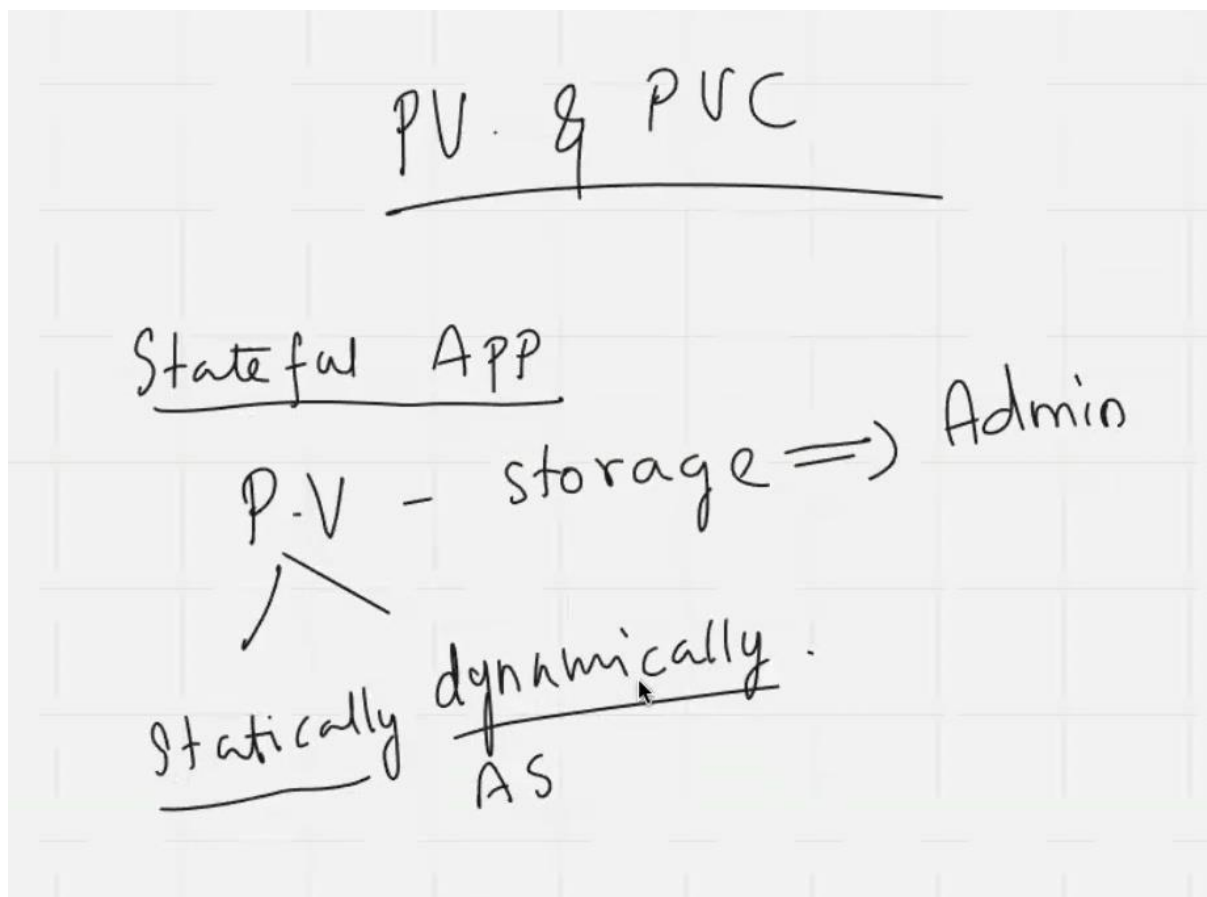 PV. & PVC
Stateful App
P.V - storage => Admin
dynamically.
Statically
AS